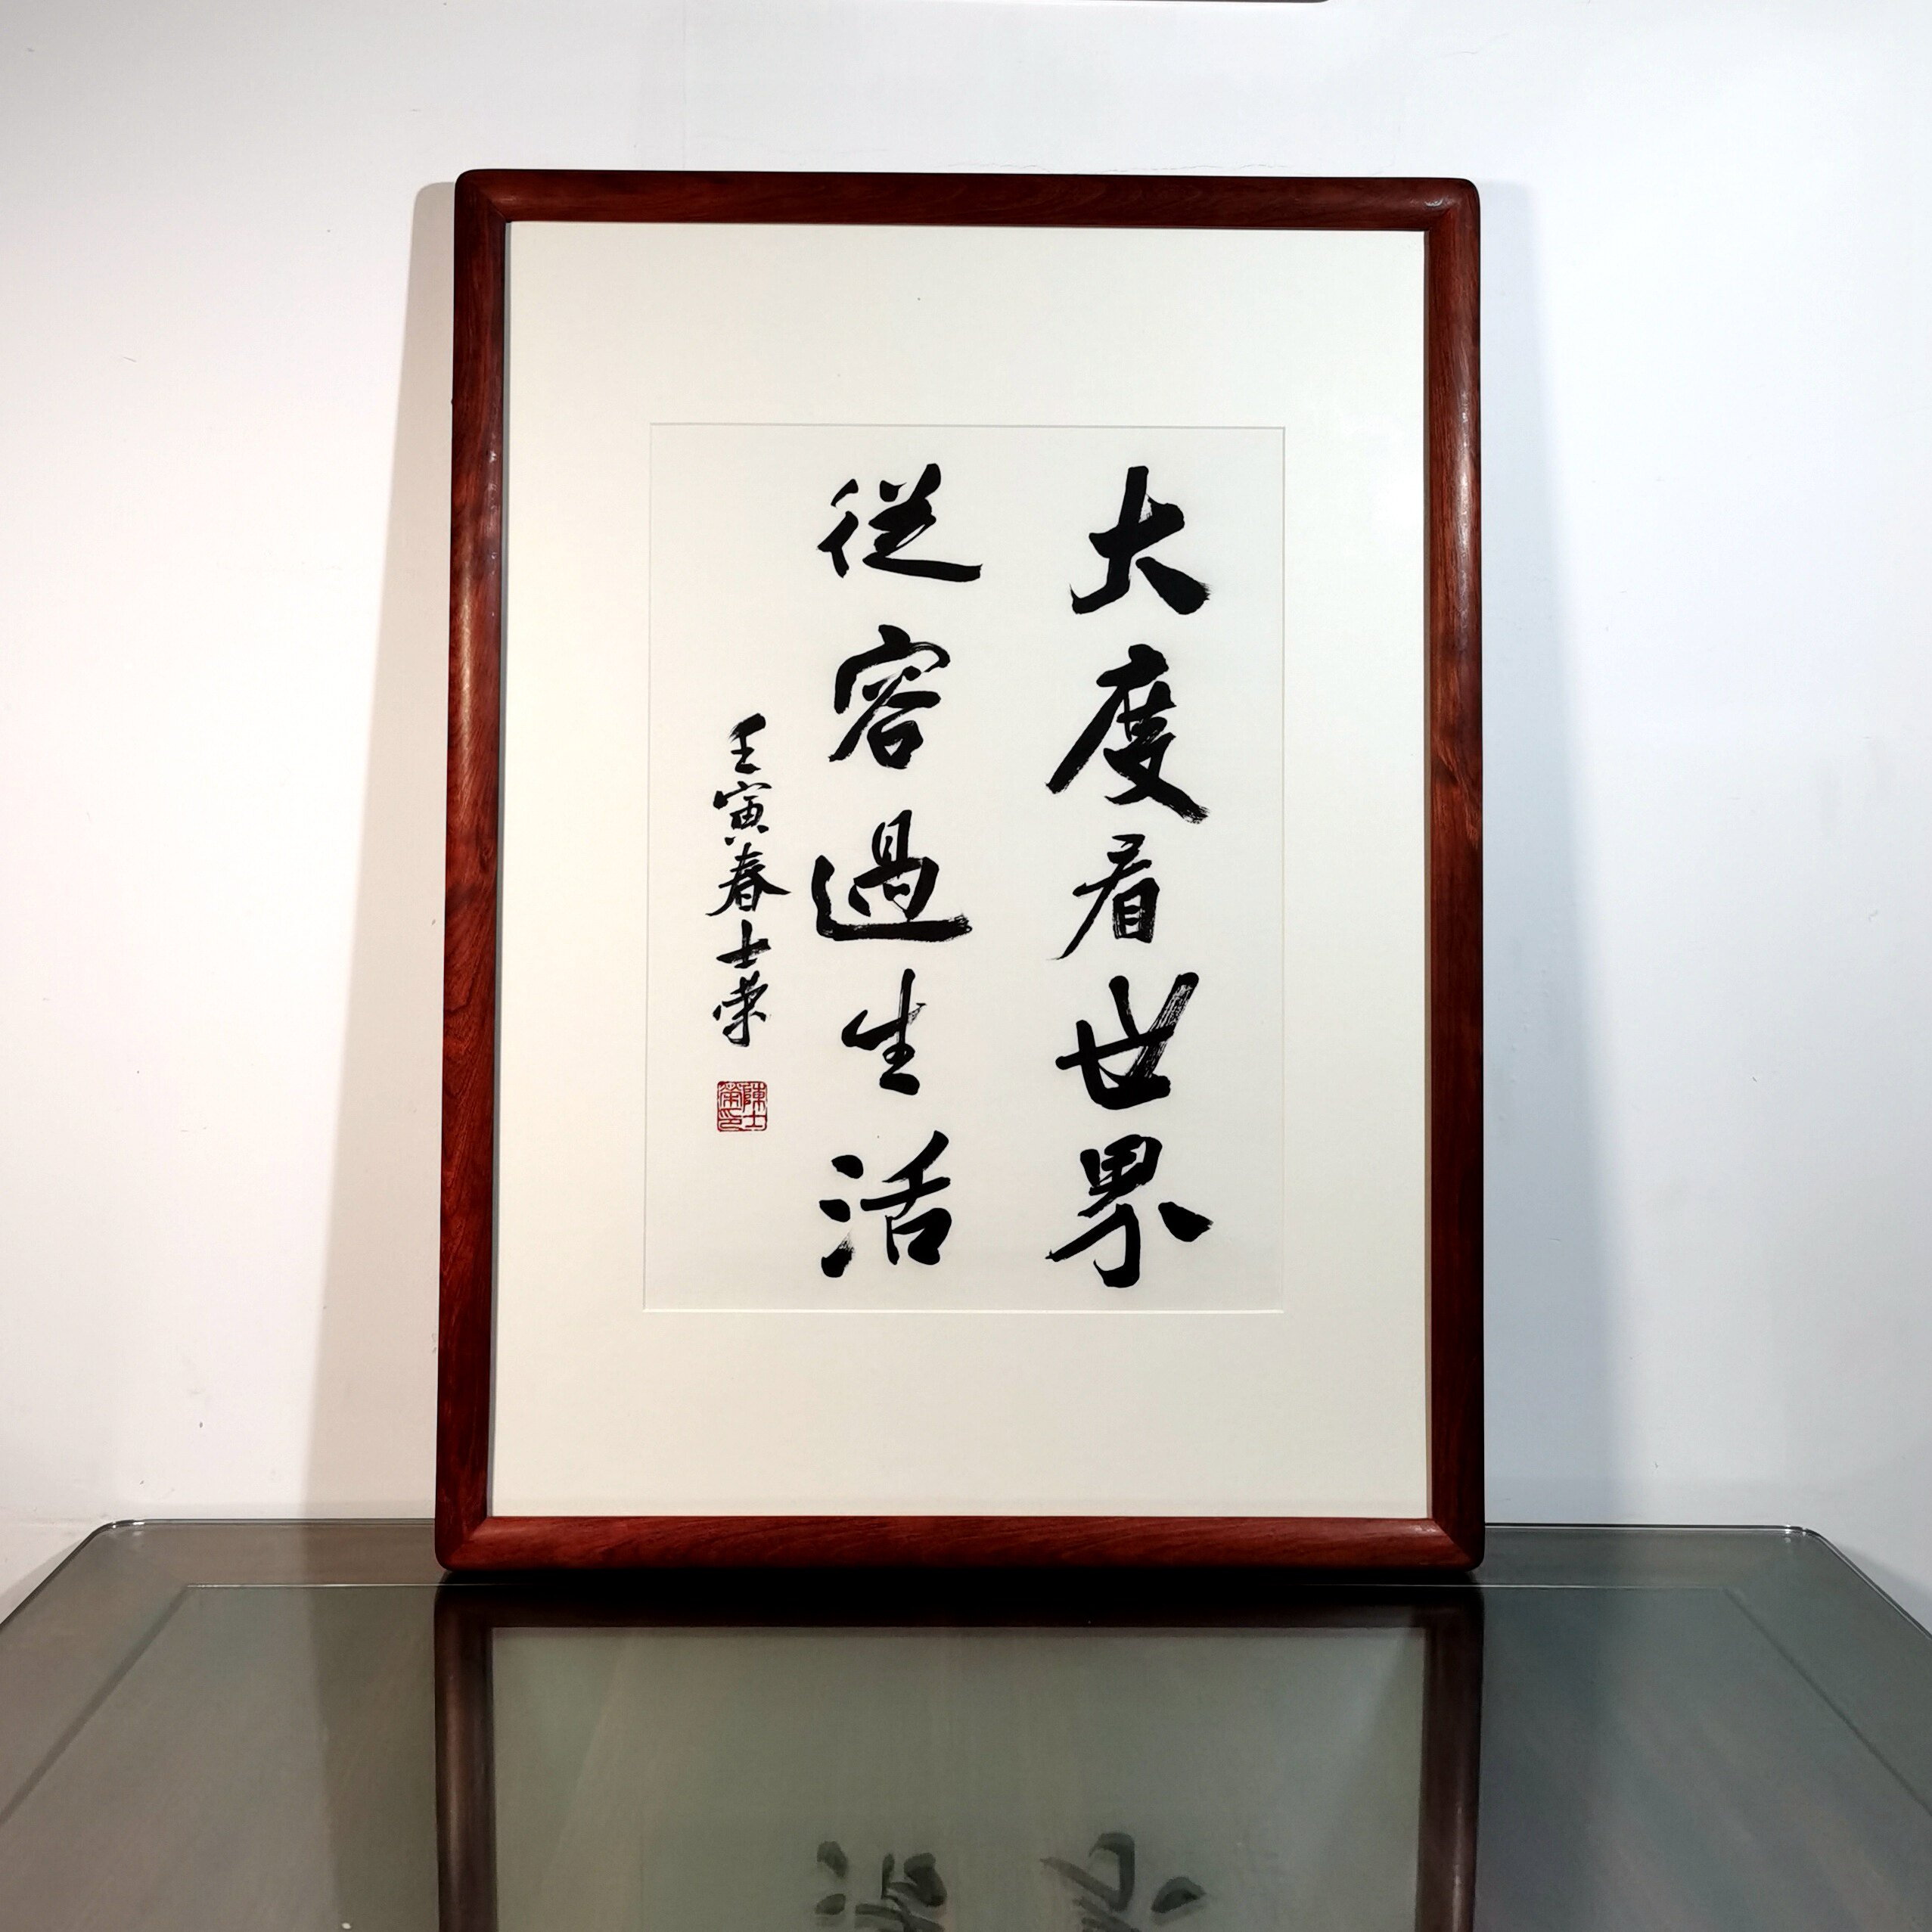 大度看世界
從容過生活
壬寅春士荣
陳士荣印